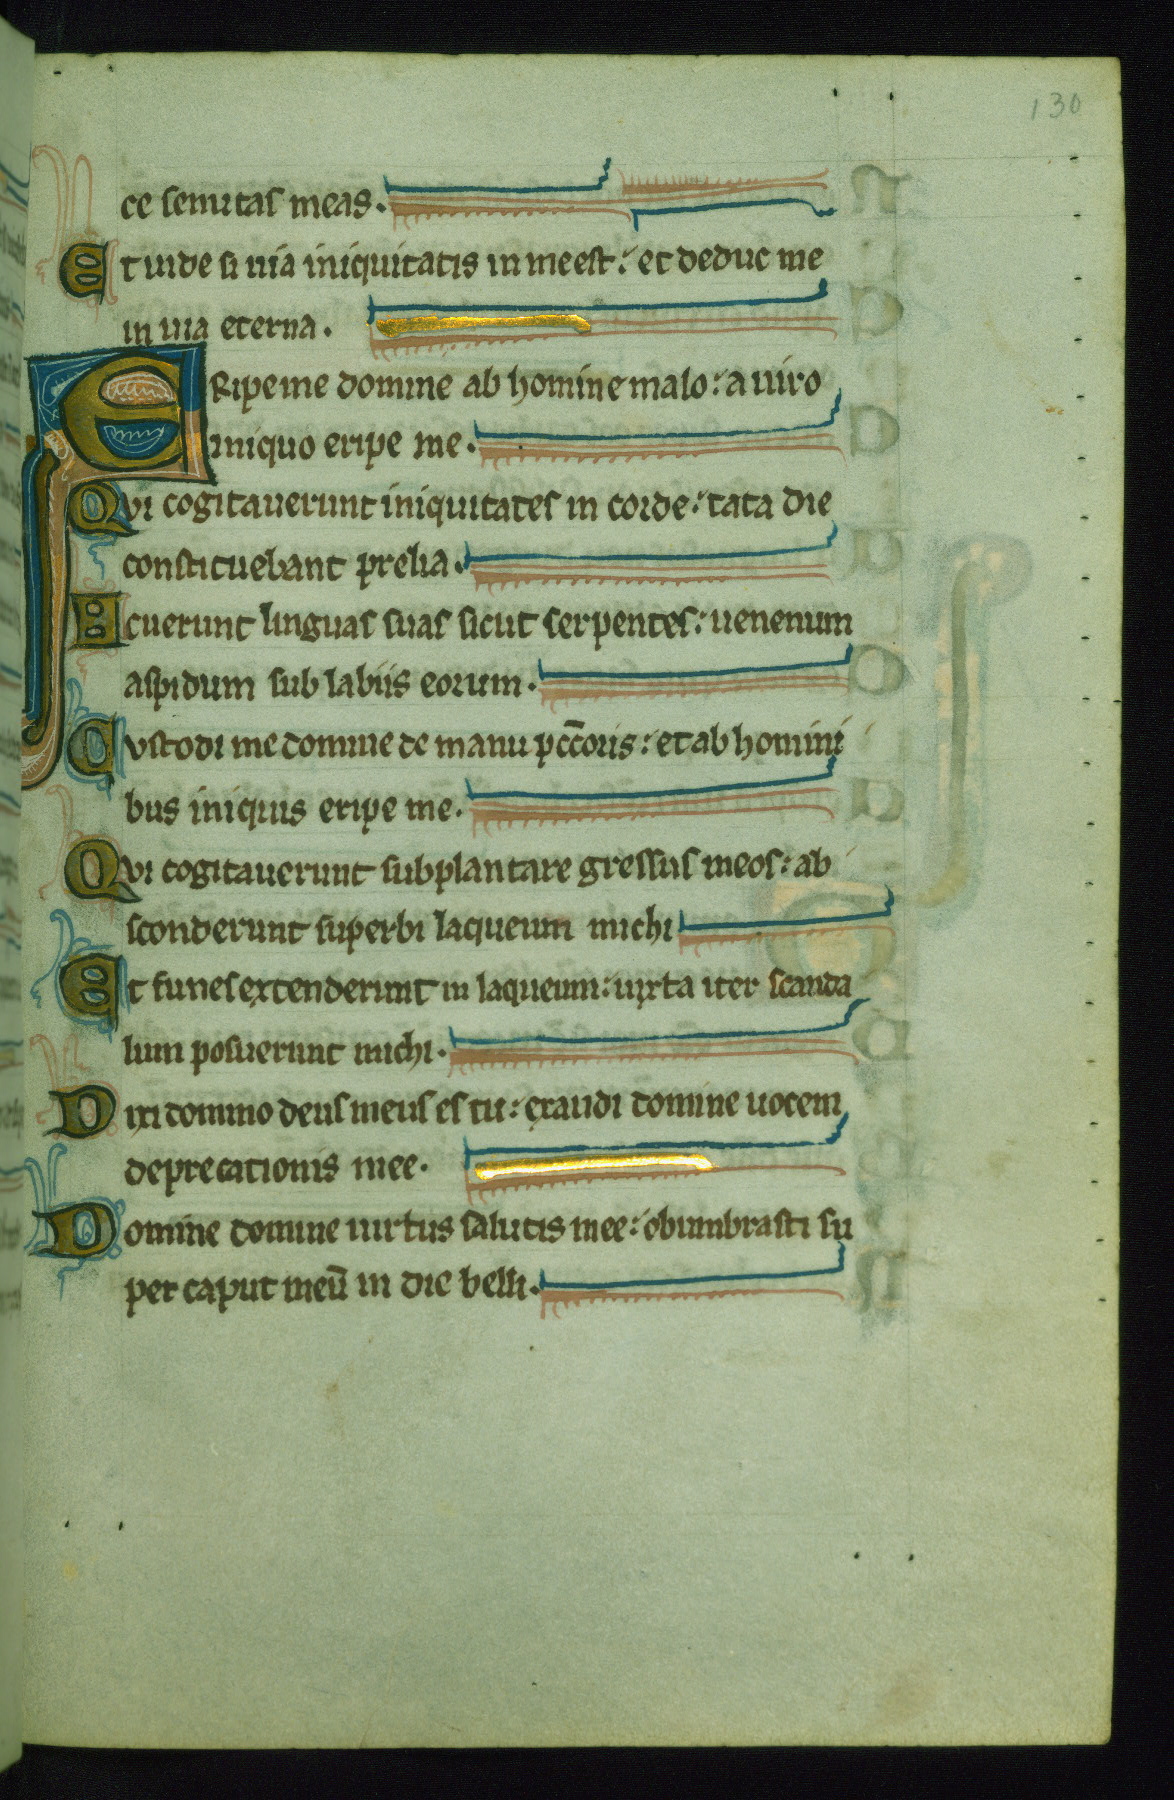 130
ce semitas meas.
Et uide si uia iniquitatis in me est: et deduc me
in uia eterna.
Eripe me domine ab homine malo: a uiro
iniquo eripe me.
Qvi cogitauerunt iniquitates in corde: tata die
constituebant prelia.
Acuerunt linguas suas sicut serpentes: uenenum
aspidum sub labiis eorum.
Cvstodi me domine de manu pcc̄oris: et ab homini
bus iniquis eripe me.
Qvi cogitauerunt subplantare gressus meos: ab
sconderunt superbi laqueum michi
Et funes extenderunt in laqueum: iuxta iter scanda
lum posuerunt michi.
Dixi domino deus meus es tu: exaudi domine uocem
deprecationis mee.
Domine domine uirtus salutis mee: obumbrasti su
per caput meū in die belli.